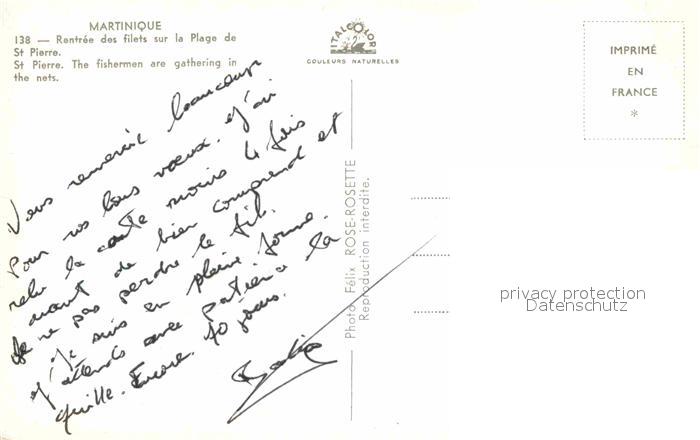 MARTINIQUE
138 — Rentrée des filets sur la Plage de
St Pierre.
St Pierre. The fishermen are gathering in
the nets.
ITALCOLOR
COULEURS NATURELLES
IMPRIMÉ
EN
FRANCE
*
Vous remercie beaucoup
pour vos bons vœux. J'ai
relu la carte moins 4 fois
avant de bien comprend et
de ne pas perdre le fil.
Je suis en pleine forme.
J'attends avec patience la
quille. Encore 40 jours.
Photo Félix ROSE-ROSETTE
Reproduction interdite.
privacy protection
Datenschutz